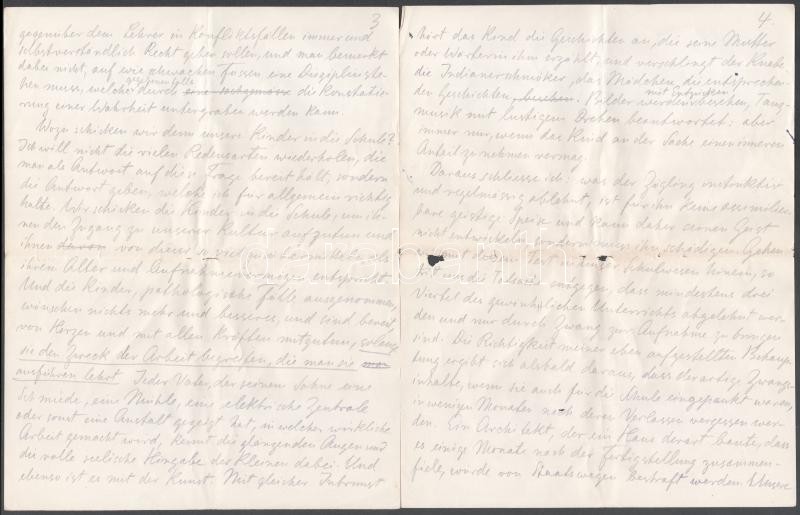 3
gegenüber dem Lehrer in Konfliktsfällen immer und
selbstverständlich Recht geben sollen, und man bemerkt
dabei nicht, auf wie schwachen Füssen eine Disziplin ste-
hen muss, welche durch die Konstatie-
rung einer Wahrheit untergraben werden kann.
Wozu schicken wir denn unsere Kinder in die Schule?
Ich will nicht die vielen Redensarten wiederholen, die
man als Antwort auf diese Frage bereit hält, sondern
die Antwort geben, welche ich für allgemein richtig
halte. Wir schicken die Kinder in die Schule, um ih-
nen den Zugang zu unserer Kultur aufzutun und
ihnen davon von dieser so viel zu als
ihrem Alter und Aufnahmevermögen entspricht.
Und die Kinder, pathologische Fälle ausgenommen,
wünschen nichts mehr und besseres, und sind bereit,
von Herzen und mit allen Kräften mitzutun, solange
sie den Zweck der Arbeit begreifen, die man sie man
ausführen lehrt. Jeder Vater, der seinem Sohne eine
Schmiede, eine Mühle, eine elektrische Zentrale
oder sonst eine Anstalt gezeigt hat, in welcher wirkliche
Arbeit gemacht wird, kennt die glänzenden Augen und
die volle seelische Hingabe der Kleinen dabei. Und
ebenso ist es mit der Kunst. Mit gleicher Inbrunst
4.
hört das Kind die Geschichten an, die seine Mutter
oder Wärterin ihm erzählt, und verschlingt der Knabe
die Indianerschmöker, das Mädchen die entsprechen-
den Geschichten. Bilder werden mit Entzücken besehen, Tanz-
musik mit lustigem Drehen beantwortet: aber
immer nur, wenn das Kind an der Sache einen inneren
Anteil zu nehmen vermag.
Daraus schliesse ich: was der Zögling instinktiv
und regelmässig ablehnt, ist für ihn keine assimilier-
bare geistige Speise und kann daher seinen Geist
nicht entwickeln, sondern muss ihn schädigen. Gehen
wir mit diesem Test in unser Schulwesen hinein, so
tritt uns die Tatsache entgegen, dass mindestens drei
Viertel des gewöhnlichen Unterrichts abgelehnt wer-
den und nur durch Zwang zur Aufnahme zu bringen
sind. Die Richtigkeit meiner eben aufgestellten Behaup-
tung ergibt sich alsbald daraus, dass derartige Zwangs-
inhalte, wenn sie auch für die Schule eingepaukt waren,
in wenigen Monaten nach deren Verlassen vergessen wer-
den. Ein Architekt, der ein Haus derart baute, dass
es einige Monate nach der Fertigstellung zusammen-
fiele, würde von Staatswegen bestraft werden. Unsere